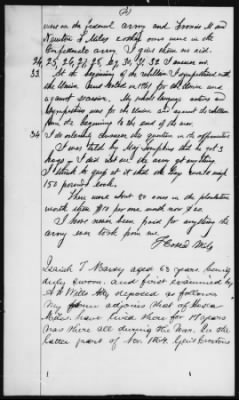 (2)
were in the federal army and Thomas M and
Newton F Miles were in the
Confederate army. I gave them no aid.
24, 25, 26, 27, 28, 29, 30, 31, 32 I answer no.
33 At the beginning of the rebellion I sympathized with
the Union and voted in 1861 for the Union and
against secession. My whole language actions and
sympathies was for the Union and against the rebellion
from the beginning to the end of the war.
34 I do solemnly answer this question in the affirmative
I was told by Mrs Tompkins she let get 3
hogs. I did not see the army get anything
I think to gess at it that the hogs would weigh
150 pounds each.
There were about 20 ones in the plantation
worth then $10 for one and now $20.
I have never been paid for anything the
army ever took from me
Hosea Miles
Isaiah T. Bardy aged 53 years being
duly sworn, and first examined by
A W Wills Atty deposed as follows
My farm adjoins that of Hosea
Miles. have lived there for 17 years
was there all during the War. In the
latter part of Nov. 1864. Gen'l